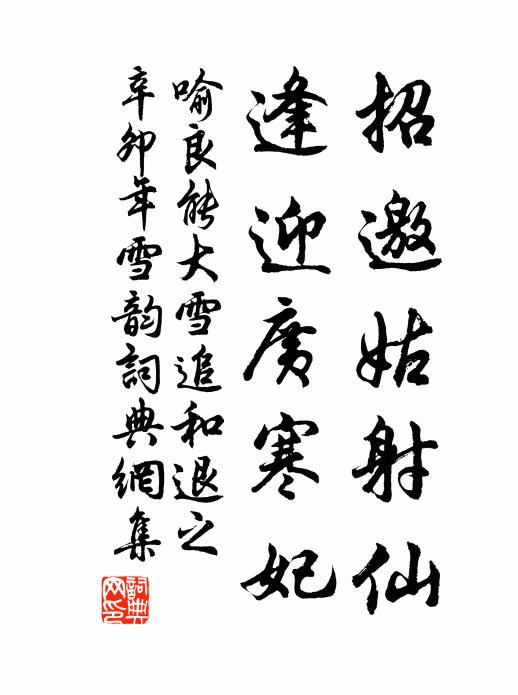 招邀姑射仙
逢迎廣寒妃
喻良能大雪追和退之
辛卯年雪韵詞典網集
詞典网印